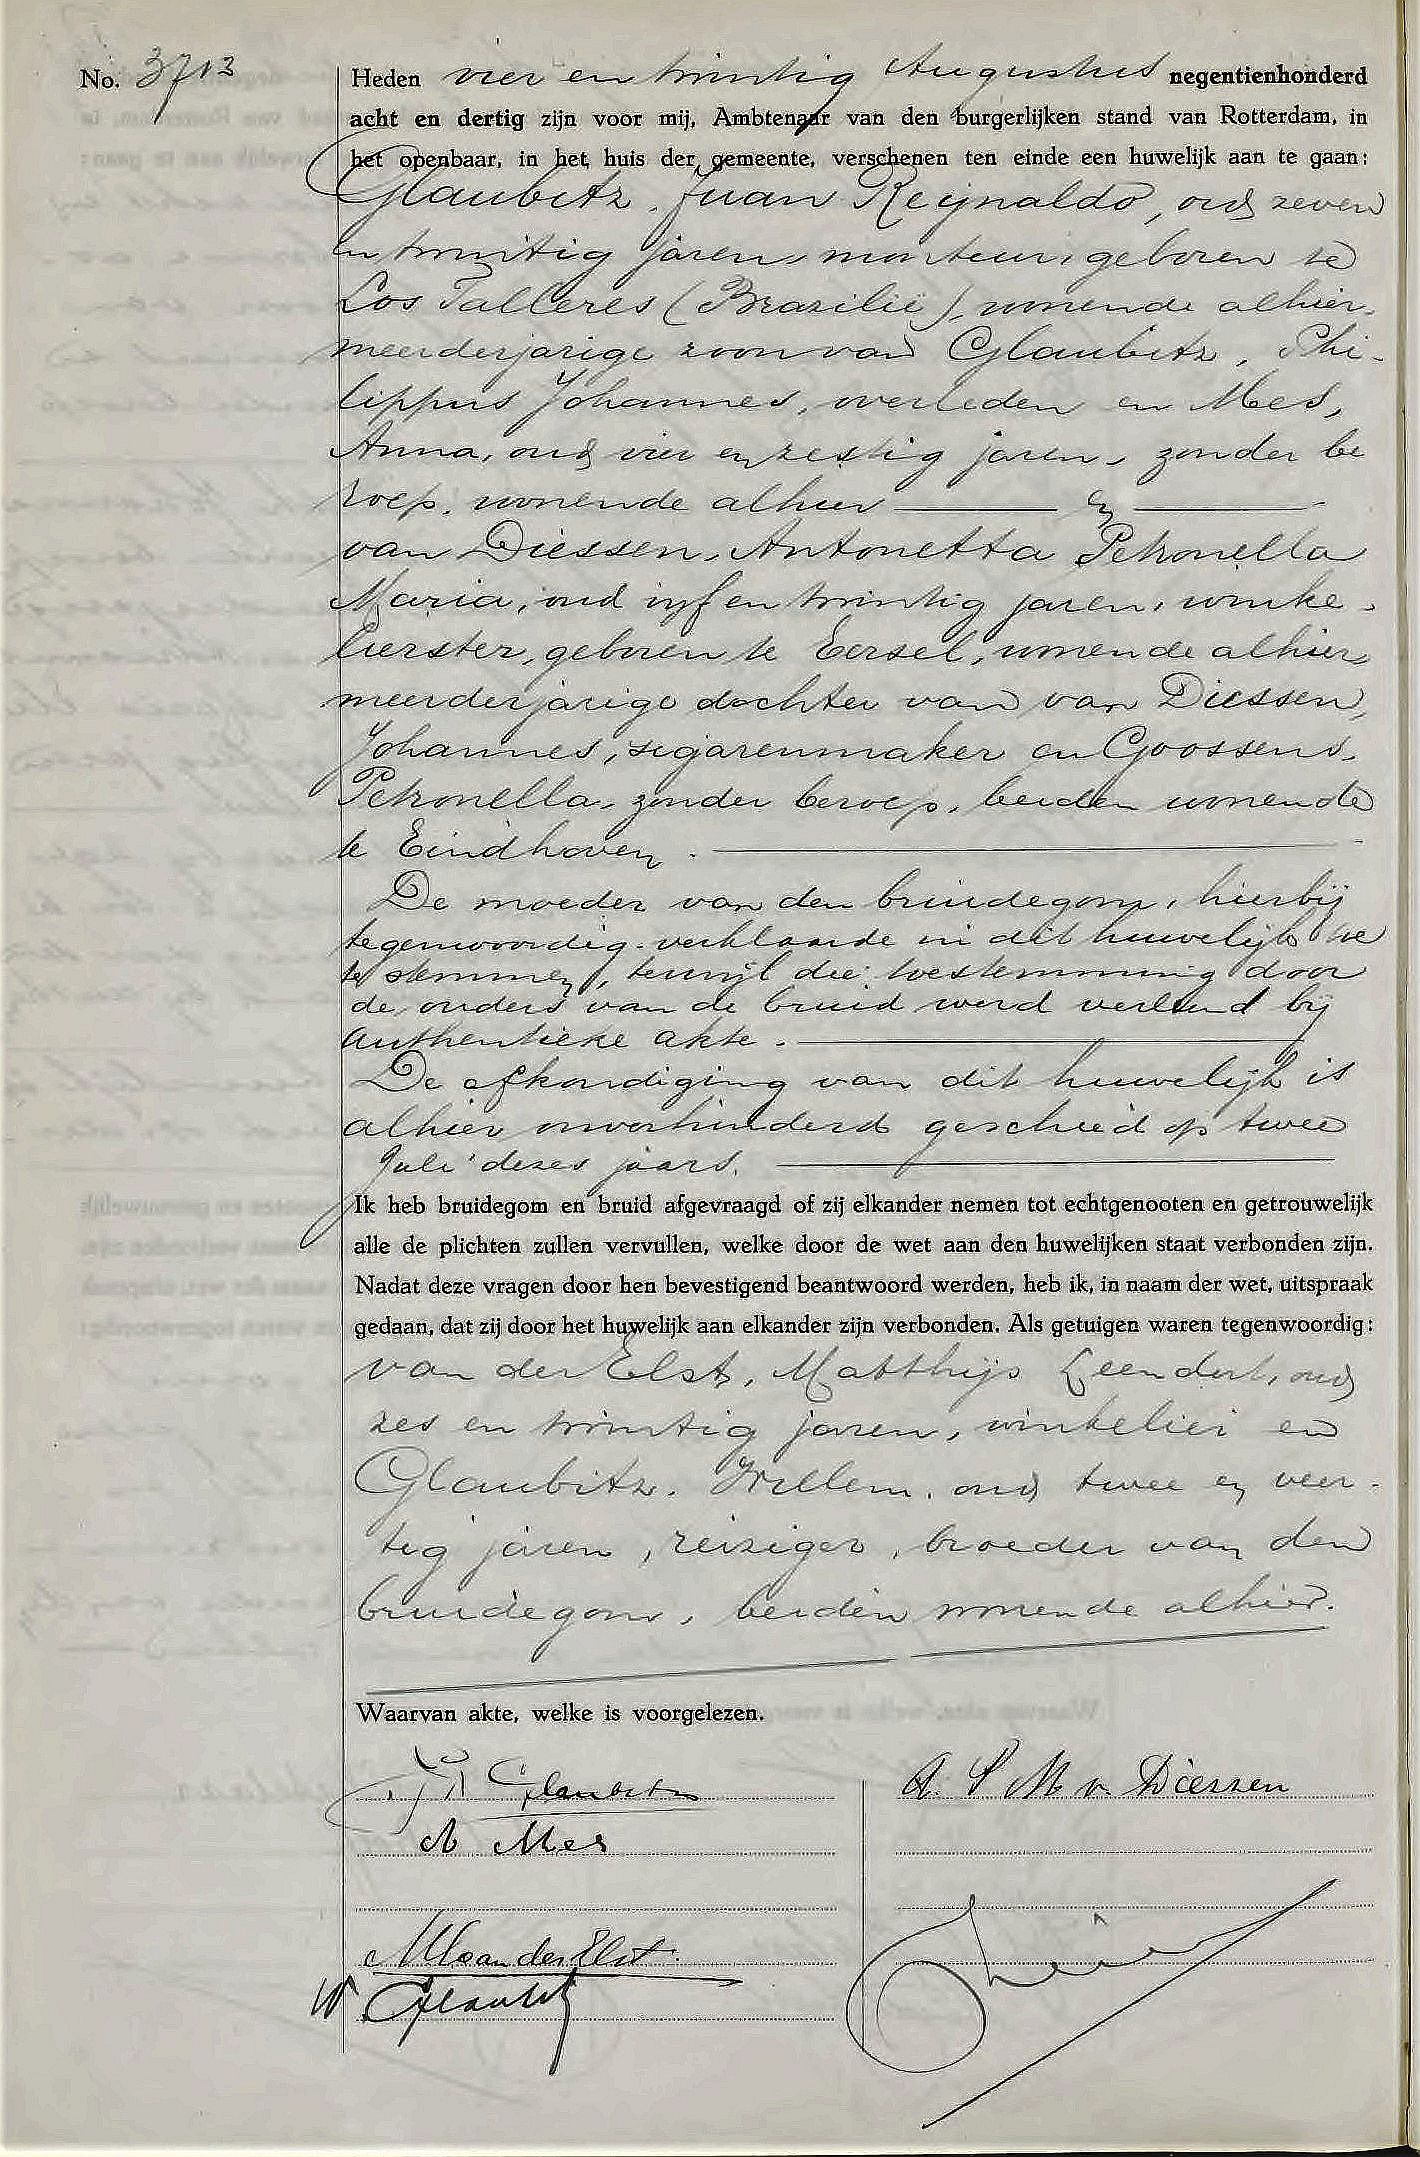 No. 3713
Heden vier en twintig Augustus negentienhonderd
acht en dertig zijn voor mij, Ambtenaar van den burgerlijken stand van Rotterdam, in
het openbaar, in het huis der gemeente, verschenen ten einde een huwelijk aan te gaan:
Glaubitz, Juan Reijnaldo, oud zeven
en twintig jaren, monteur, geboren te
Los Talleres (Brazilië), wonende alhier,
meerderjarige zoon van Glaubitz, Phi-
lippus Johannes, overleden en Mes,
Anna, oud vier en zestig jaren, zonder be
roep, wonende alhier en
van Diessen, Antonetta Petronella
Maria, oud vijf en twintig jaren, winke-
lierster, geboren te Eersel, wonende alhier,
meerderjarige dochter van van Diessen,
Johannes, sigarenmaker en Goossens,
Petronella, zonder beroep, beiden wonende
te Eindhoven.
De moeder van den bruidegom, hierbij
tegenwoordig, verklaarde in dit huwelijk toe
te stemmen, terwijl die toestemming door
de ouders van de bruid werd verleend bij
authentieke akte.
De afkondiging van dit huwelijk is
alhier onverhinderd geschied op twee
Juli dezes jaars.
Ik heb bruidegom en bruid afgevraagd of zij elkander nemen tot echtgenooten en getrouwelijk
alle de plichten zullen vervullen, welke door de wet aan den huwelijken staat verbonden zijn.
Nadat deze vragen door hen bevestigend beantwoord werden, heb ik, in naam der wet, uitspraak
gedaan, dat zij door het huwelijk aan elkander zijn verbonden. Als getuigen waren tegenwoordig:
van der Elst, Matthijs Leendert, oud
zes en twintig jaren, winkelier en
Glaubitz, Willem, oud twee en veer-
tig jaren, reiziger, broeder van den
bruidegom, beiden wonende alhier.
Waarvan akte, welke is voorgelezen.
J R Glaubitz
A. P. M. v. Diessen
A Mes
M L van der Elst.
W Glaubitz